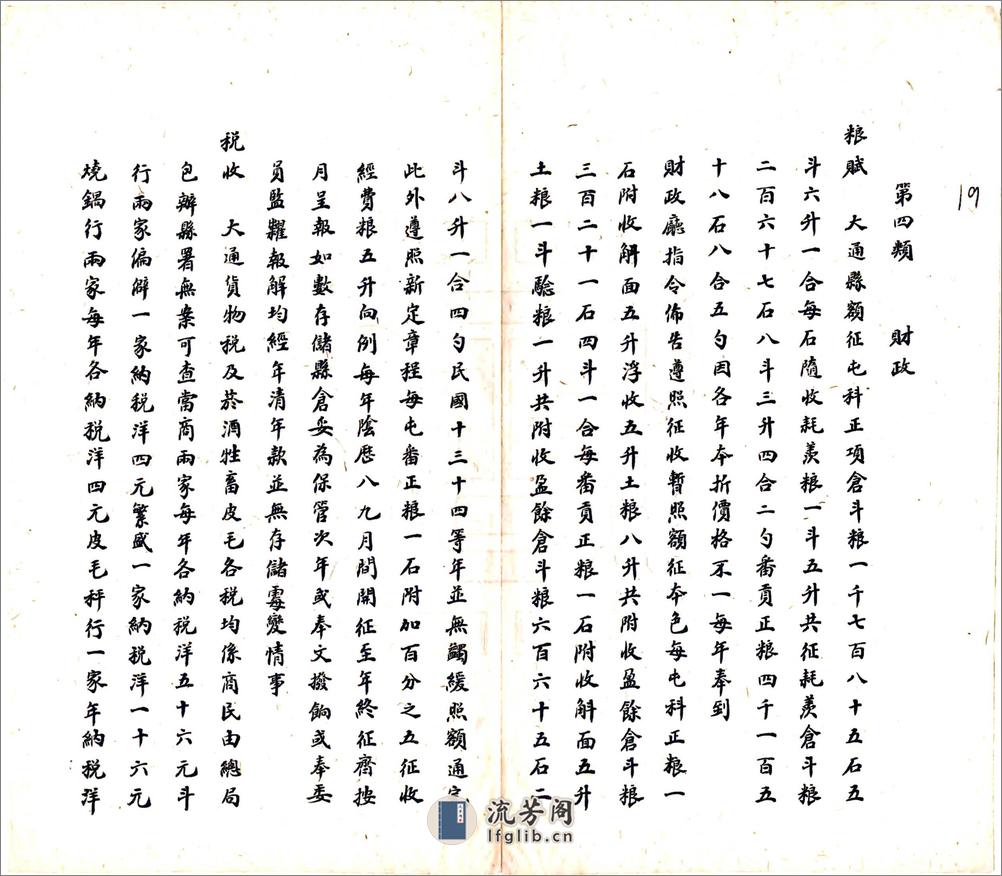 19
第四類　財政
粮賦　大通縣額征屯科正項倉斗粮一千七百八十五石五
斗六升一合每石隨收耗羨粮一斗五升共征耗羨倉斗粮
二百六十七石八斗三升四合二勺番貢正粮四千一百五
十八石八合五勺因各年本折價格不一每年奉到
財政廳指令佈告遵照征收暫照額征本色每屯科正粮一
石附收觧面五升浮收五升土粮八升共附收盈餘倉斗粮
三百二十一石四斗一合每番貢正粮一石附收觧面五升
土粮一斗騐粮一升共附收盈餘倉斗粮六百六十五石二
斗八升一合四勺民國十三十四等年並無蠲緩照額通完
此外遵照新定章程每屯番正粮一石附加百分之五征收
經費粮五升向例每年陰歷八九月間開征至年終征齊按
月呈報如數存儲縣倉妥為保管次年或奉文撥餉或奉委
員監糶報解均經年清年款並無存儲霉變情事
税收　大通貨物税及菸酒牲畜皮毛各税均係商民由總局
包辦縣署無案可查當商兩家每年各納税洋五十六元斗
行兩家偏僻一家納税洋四元繁盛一家納税洋一十六元
燒鍋行兩家每年各納税洋四元皮毛秤行一家年納税洋
流芳阁
lfglib.cn